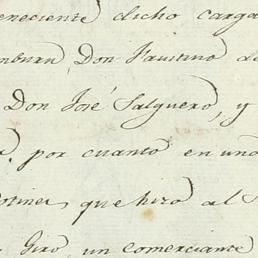 eneciente dicho carga
nburu, Don Faustino de
Don José Salguero, y
por cuanto en uno
otines, que hizo al
Giro, un comerciante